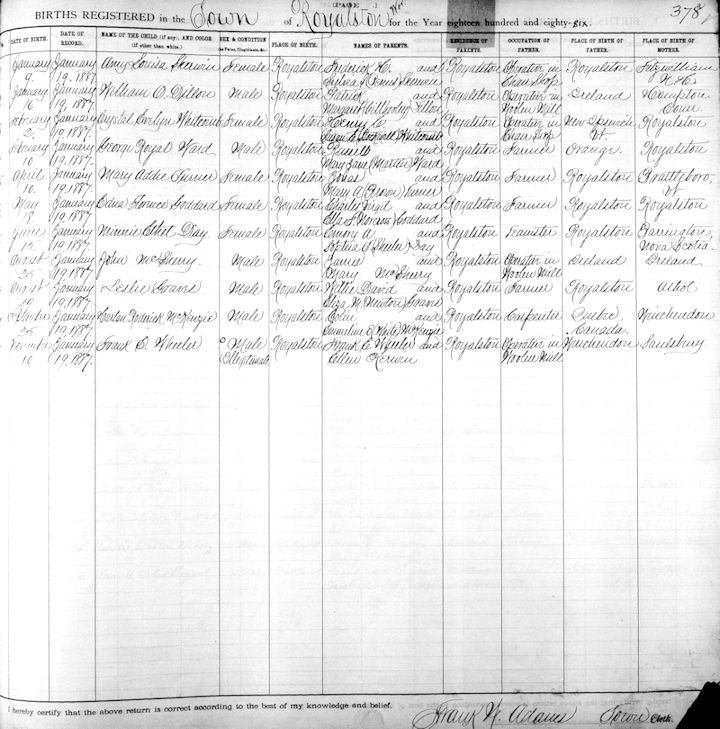 BIRTHS REGISTERED in the Town of Royalston for the Year eighteen hundred and eighty-six. 378
DATE OF BIRTH. DATE OF RECORD. NAME OF THE CHILD (if any), AND COLOR (if other than white). SEX & CONDITION (as Twins, Illegitimate, &c.) PLACE OF BIRTH. NAMES OF PARENTS. RESIDENCE OF PARENTS. OCCUPATION OF FATHER. PLACE OF BIRTH OF FATHER. PLACE OF BIRTH OF MOTHER.
January January Amy Louisa Sherwin Female Royalston Frederick H. and Royalston Operator in Royalston Fitzwilliam
9. 19, 1887. Sherwin Chair Shop N.H.
January January William O. Dillon Male Royalston Patrick and Royalston Operator in Ireland
16 19, 1887. Margaret Dillon Woolen Mill Conn
February January Crystal Evelyn Whitcomb Female Royalston and Royalston Operator in New Ipswich Royalston
2, 19, 1887. Whitcomb Chair Shop
February January George Royal Ward Male Royalston Russell and Royalston Farmer Orange. Royalston
10 19, 1887. Mary Jane Ward
April January Mary Addie Turner Female Royalston Jonas and Royalston Farmer Royalston Brattleboro,
10. 19, 1887. Mary A. (Brown) Turner Vt
May January Edna Florence Goddard Female Royalston Charles and Royalston Farmer Royalston Royalston
18 19, 1887. Ella Goddard
June January Minnie Ethel Day Female Royalston Emory A and Royalston Teamster Royalston Barrington,
15 19, 1887. Sophia Day Nova Scotia
August January John McSherry. Male Royalston James and Royalston Operator in Ireland Ireland
25 19, 1887. Mary McSherry Woolen Mill
August January Leslie Male Royalston Willie David and Royalston Farmer Royalston Athol
29 19, 1887. Eliza M. Newton
January Roderick McKenzie Male Royalston Colin and Royalston Carpenter Quebec, Winchendon
25 19, 1887. Emmeline E White McKenzie Canada.
November January Frank E. Wheeler Male Royalston Frank E. Wheeler and Royalston Operator in Winchendon
10 19, 1887. Illegitimate Ellen Woolen Mill
I hereby certify that the above return is correct according to the best of my knowledge and belief.
Frank W. Adams Town Clerk.